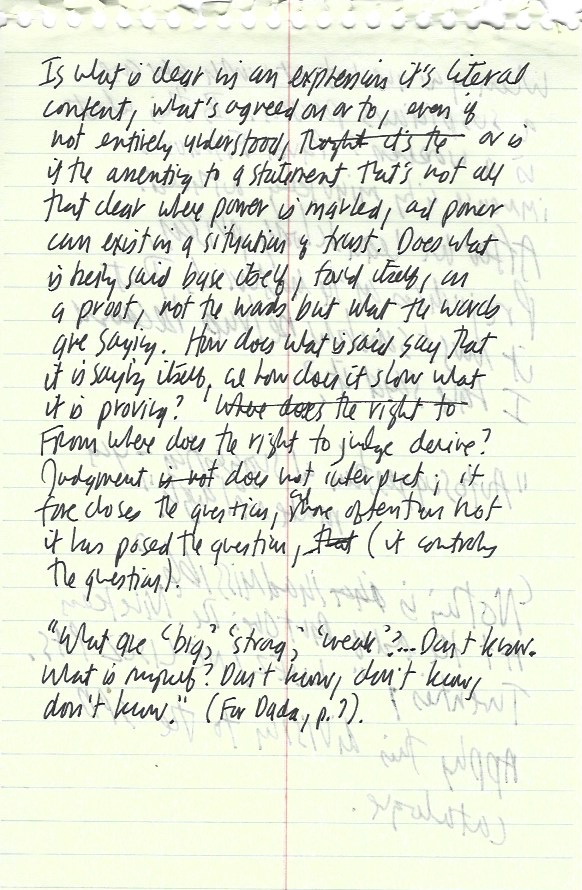 Is what is clear in an expression it's literal
content, what's agreed on or to, even if
not entirely understood, Thought it's the or is
it the assenting to a statement that's not all
that clear where power is masked, and power
can exist in a situation of trust. Does what
is being said base itself, found itself, on
a proof, not the words but what the words
are saying. How does what is said say that
it is saying itself, or how does it show what
it is proving? Where does the right to
From where does the right to judge derive?
Judgment is not does not interpret; it
fore closes the question, more often than not
it has posed the question, that (it controls
the question).
"What are 'big,' 'strong,' 'weak'?... Don't know.
What is myself? Don't know, don't know,
don't know." (For Dada, p. ?).
Nothing is
Apply this
to the
catalogue.